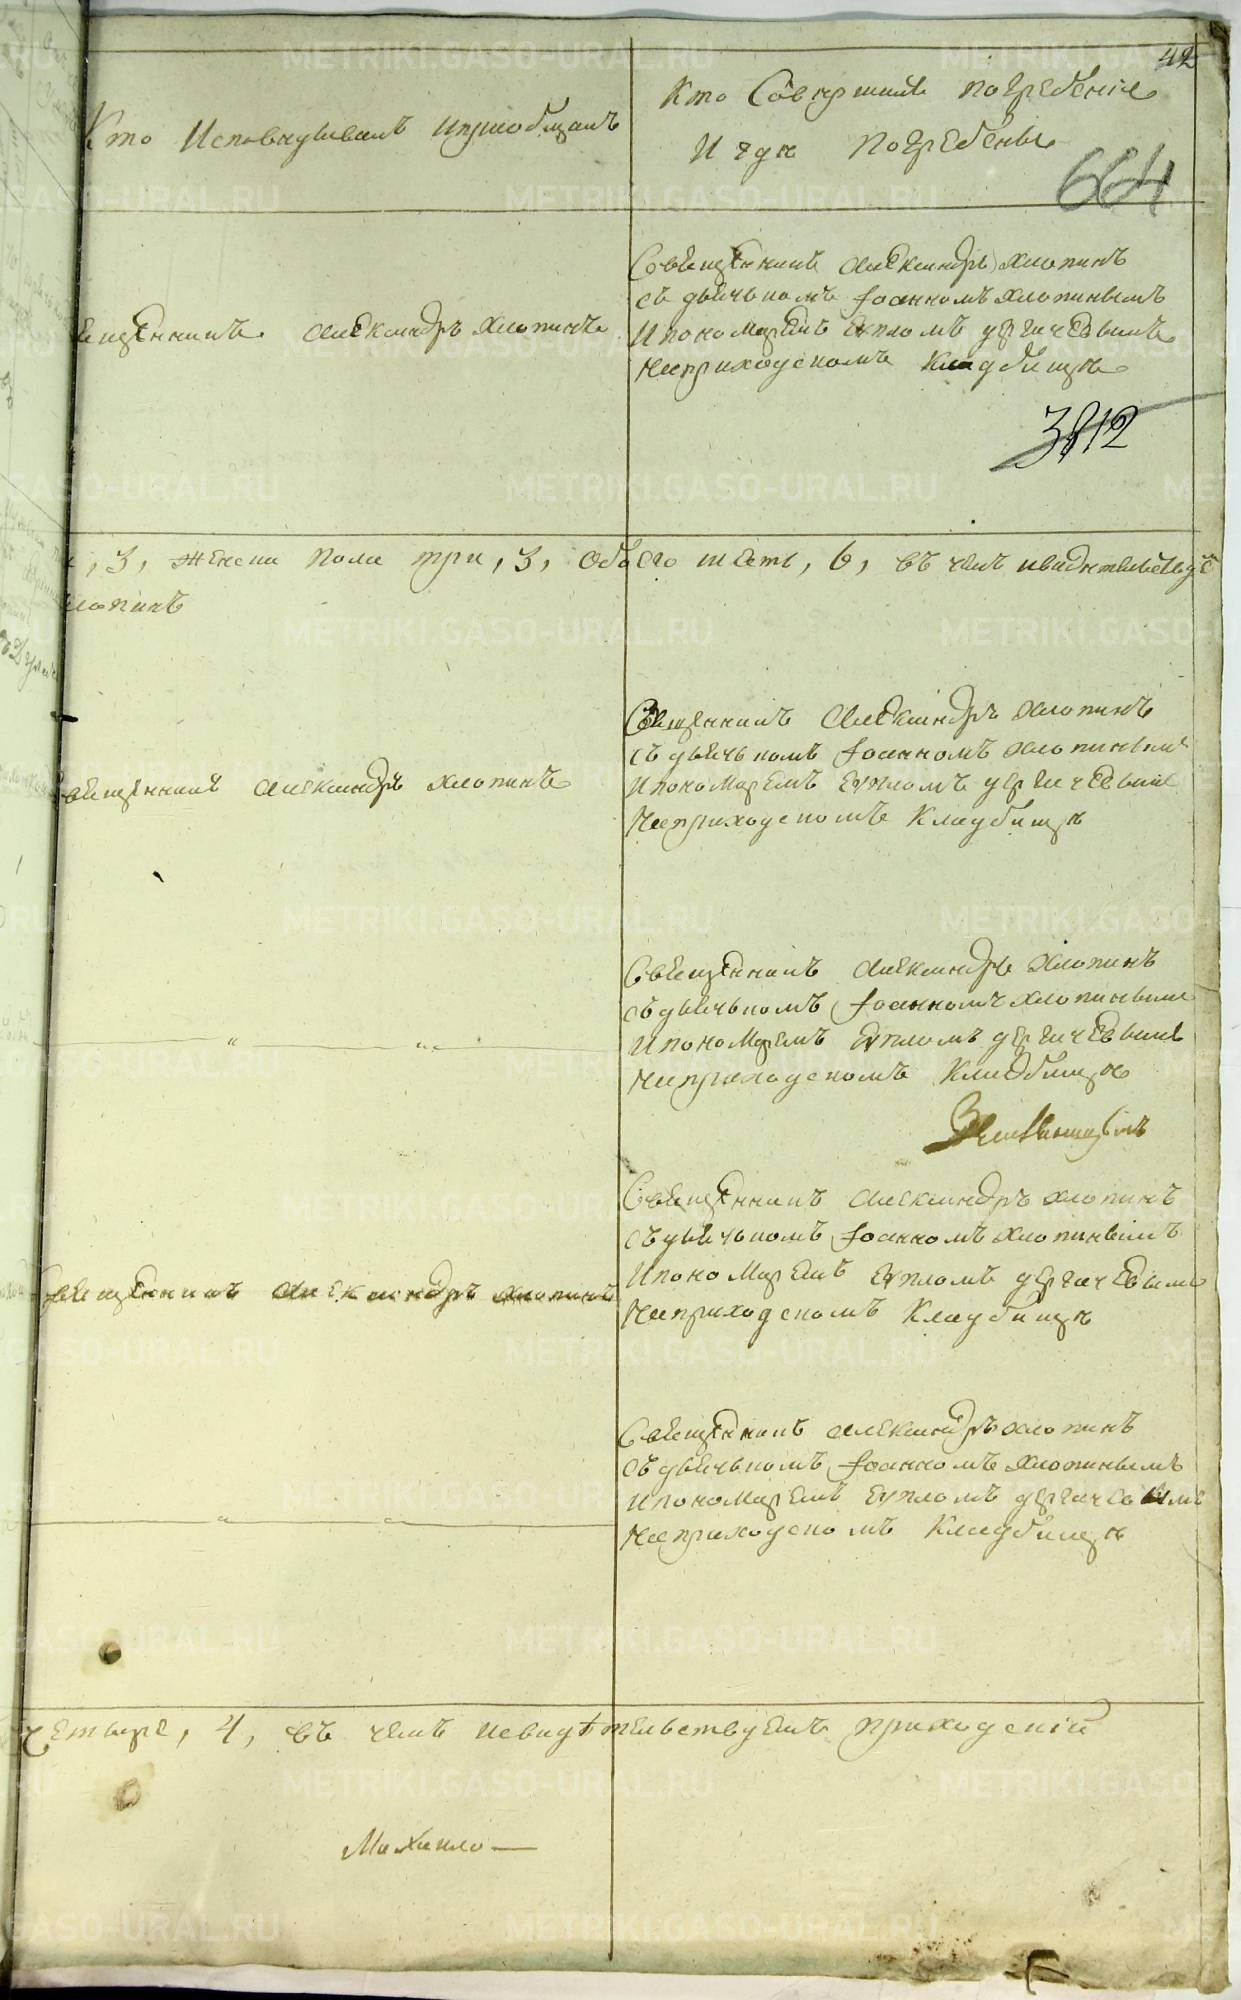 42
Кто Исповедывалъ иприобщалъ
Кто Совершилъ погребенiе
И гдѣ погребены
664
вященникъ Александръ Хлопинъ
Священникъ Александръ Хлопинъ
съ дьячькомъ Iоанномъ Хлопинымъ
И пономаремъ Еѵпломъ Дергачевымъ
Наприходскомъ Кладбищѣ
3812
, 3, женска пола три, 3, обоего шесть, 6, въ чемъ исвидѣтельствуе
лопинъ
Священникъ Александръ Хлопинъ
Священникъ Александръ Хлопинъ
съ дьячькомъ Iоанномъ Хлопинымъ
И пономаремъ Еѵпломъ Дергачевымъ
Наприходскомъ Кладбищѣ
Священникъ Александръ Хлопинъ
съ дьячькомъ Iоанномъ Хлопинымъ
И пономаремъ Еѵпломъ Дергачевымъ
Наприходскомъ Кладбищѣ
Священникъ Александръ Хлопинъ
Священникъ Александръ Хлопинъ
съ дьячькомъ Iоанномъ Хлопинымъ
И пономаремъ Еѵпломъ Дергачевымъ
Наприходскомъ Кладбищѣ
Священникъ Александръ Хлопинъ
съ дьячькомъ Iоанномъ Хлопинымъ
И пономаремъ Еѵпломъ Дергачевымъ
Наприходскомъ Кладбищѣ
четыре, 4, въ чемъ исвидѣтельствуемъ приходскiй
Михаило